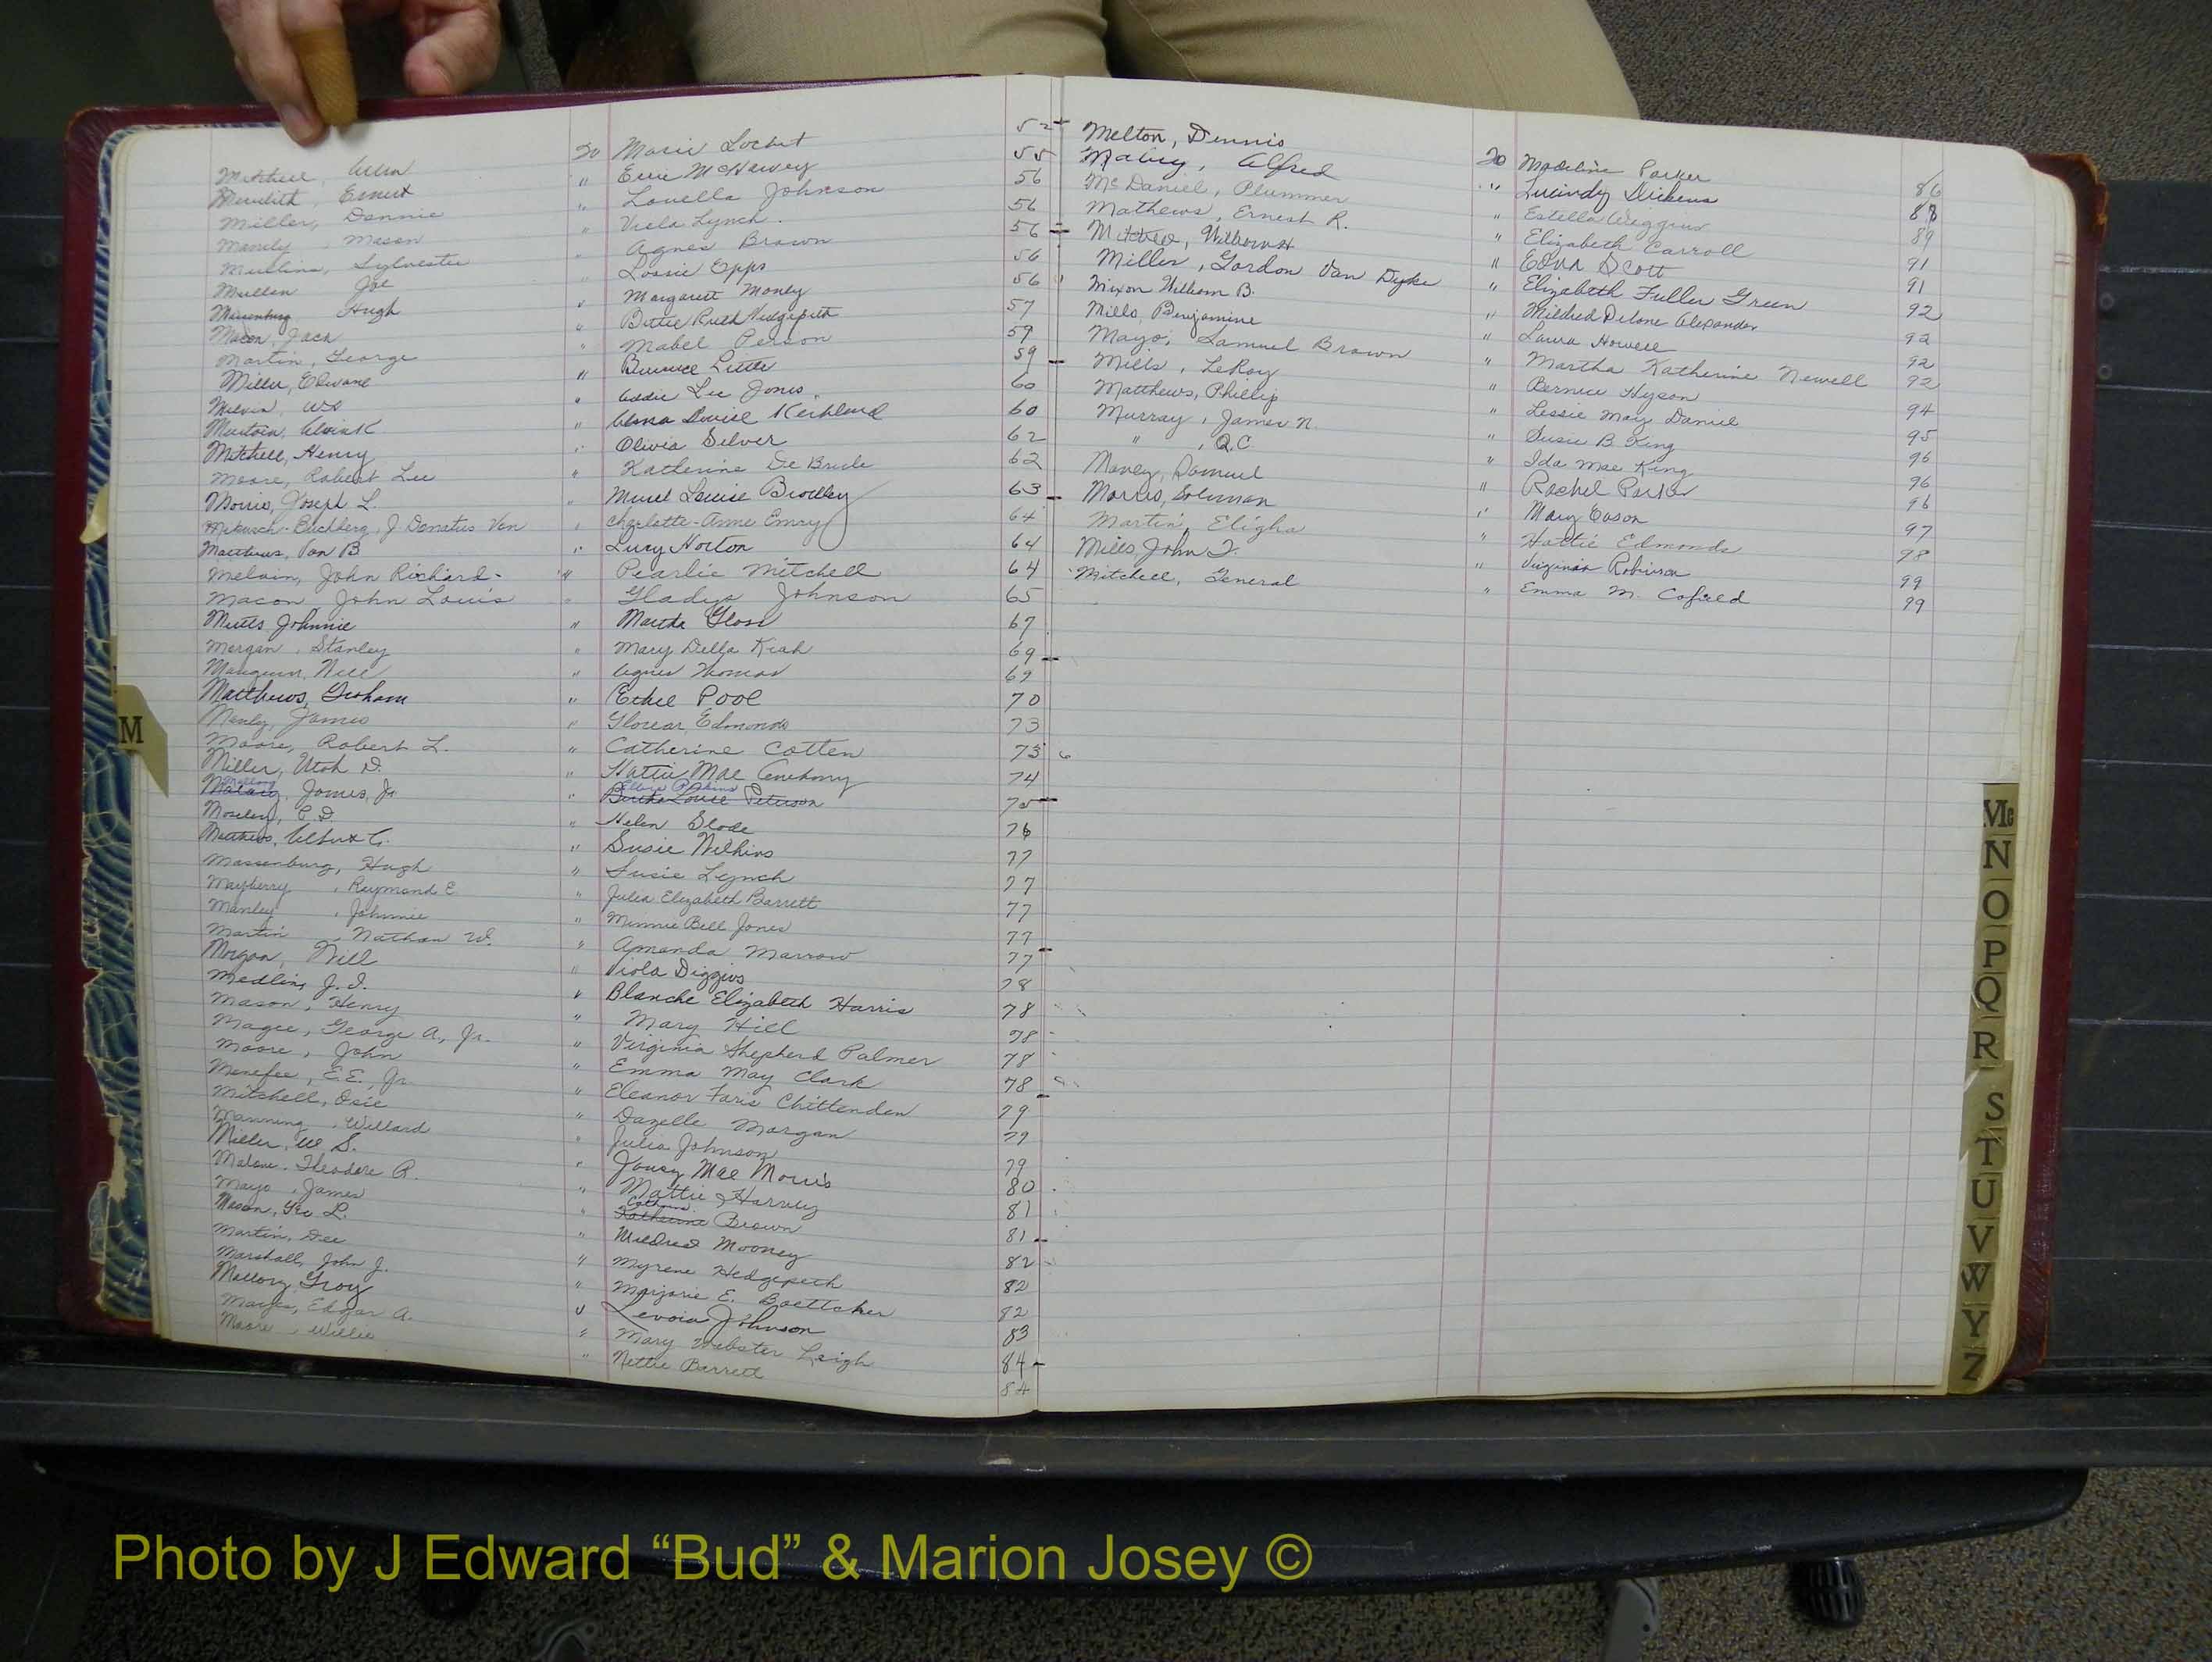 Mitchell, to Marie Lochet 52
Meredith, Ernest " Effie McHarvey 55
Miller, Dannie " Louella Johnson 56
Manely, Mason " Viola Lynch 56
Mullins, Sylvester " Agnes Brown 56
Mullen Joe " Lossie Epps 56
Massenburg Hugh " Margaret Manly 56
Macon, Jack " Bettie Ruth Hedgepeth 57
Martin, George " Mabel Person 59
Miller, Elwane " Bernice Little 59
Melvin, W.S. " Addie Lee Jones 60
" Alma Louise Kirkland 60
Mitchell, Henry " Olivia Silver 62
Moore, Robert Lee " Katherine De Brule 62
Morris, Joseph L. " Muriel Louise Bradley 63
Mikusch-Buchberg, J. Donatus Von " Charlotte-Anne Emry 64
Matthews, Van B " Lucy Horton 64
Melvin, John Richard " Pearlie Mitchell 64
Macon John Louis " Gladys Johnson 65
Johnnie " Martha 67
Morgan, Stanley " Mary Della Keah 69
Mangum, " Agnes Thomas 69
Matthews, Graham " Ethel Pool 70
Manly, James " Glorear Edmonds 73
Moore, Robert L. " Catherine Cotten 73
Miller, Utah D. " Hattie Mae Anthony 74
James, Jr. " Bertha Louise Peterson 75
Moseley, C.D. " Helen Slade 76
Matthews, Albert C. " Susie Wilkins 77
Massenburg, Hugh " Susie Lynch 77
Mayberry, Raymond E " Julia Elizabeth Barrett 77
Manley, Johnnie " Minnie Bell Jones 77
Martin, Nathan W. " Amanda Marrow 77
Morgan, Will " Viola Diggins 78
Medlin, J.I. " Blanche Elizabeth Harris 78
Mason, Henry " Mary Hill 78
Magee, George A, Jr. " Virginia Shepherd Palmer 78
Moore, John " Emma May Clark 78
Menefee, E.E., Jr. " Eleanor Faris Chittenden 79
Mitchell, Osie " Dazelle Morgan 79
Manning, Willard " Julia Johnson 79
Miller, W.S. " Jousy Mae Morris 80
Malone, Theodore R. " Mattie Harvey 81
Mayo, James " Katherine Brown 81
Mason, Geo L. " Mildred Mooney 82
Martin, Dee " Myrene Hedgepeth 82
Marshall, John J. " Marjorie E. Boettcher 82
Mallory, Troy " Levoia Johnson 83
Mayes, Edgar A. " Mary Webster Leigh 84
Moore, Willie " Nettie Barrett 84
M
Melton, Dennis to Madeline Parker 86
Mabry, Alfred " Lucindy Dickens 88
McDaniel, Plummer " Estella Wiggins 89
Mathews, Ernest R. " Elizabeth Carroll 91
" Edna Scott 91
Miller, Gordon Van Dyke " Elizabeth Fuller Green 92
Mixon William B. " Mildred Delone Alexander 92
Mills, Benjamine " Laura Howell 92
Mayo, Samuel Brown " Martha Katherine Newell 92
Mills, LeRoy " Bernice Hyson 94
Matthews, Phillip " Lessie May Daniel 95
Murray, James N. " Susie B. King 96
" , Q.C. " Ida Mae King 96
" Rachel Parker 96
Morris, Soloman " Mary Eason 97
Martin, Eligha " Hattie Edmonds 98
Mills, John T. " Virginia Robinson 99
Mitchell, General " Emma M. Cofield 99
Mc
N
O
P
Q
R
S
T
U
V
W
Y
Z
Photo by J Edward “Bud” & Marion Josey ©